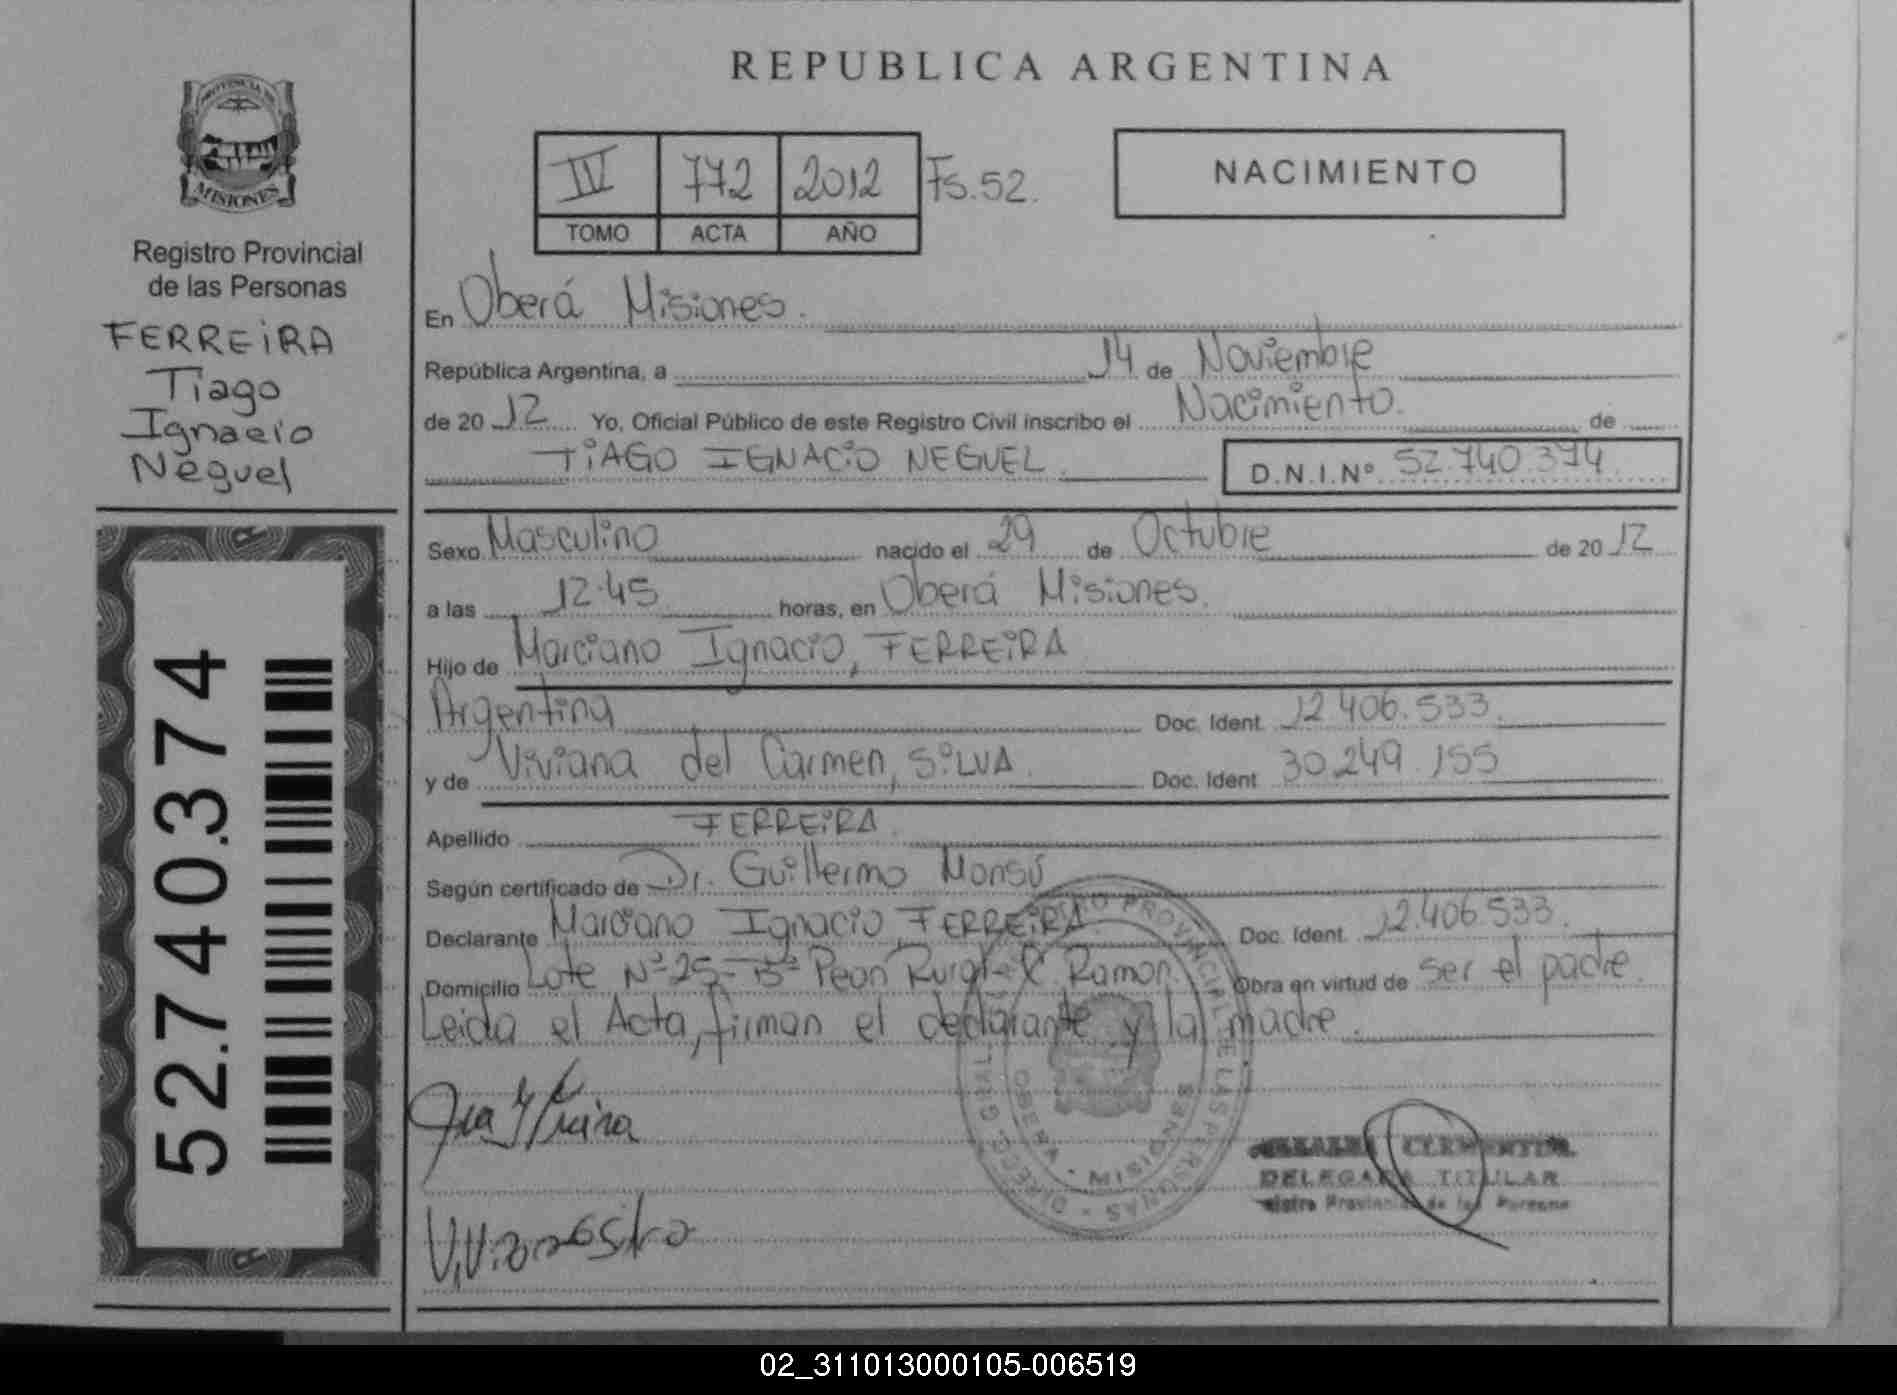 PROVINCIA DE
MISIONES
Registro Provincial
de las Personas
FERREIRA
Tiago
Ignacio
Neguel
52.740.374
REPUBLICA ARGENTINA
IV 772 2012 Fs.52.
TOMO ACTA AÑO
NACIMIENTO
En Oberá Misiones.
República Argentina, a 14 de Noviembre
de 2012 Yo, Oficial Público de este Registro Civil inscribo el Nacimiento. de
TIAGO IGNACIO NEGUEL. D.N.I.Nº 52.740.374
Sexo Masculino nacido el 29 de Octubre de 2012
a las 12.45 horas, en Oberá Misiones.
Hijo de Marciano Ignacio, FERREIRA
Argentina Doc. Ident. 12.406.533.
y de Viviana del Carmen, SiLVA. Doc. Ident 30.249.155
Apellido FERREIRA.
Según certificado de Dr. Guillermo Monsú
Declarante Marciano Ignacio, FERREIRA. Doc. Ident. 12.406.533.
Domicilio Lote Nº 25 - Bº Peon Rural - C. Ramon. Obra en virtud de ser el padre.
Leida el Acta, firman el declarante y la madre.
REGISTRO PROVINCIAL DE LAS PERSONAS - DIRECC. GRAL.
OBERA - MISIONES
CLEMENTINA
DELEGADA TITULAR
Registro Provincial de las Personas
02_311013000105-006519